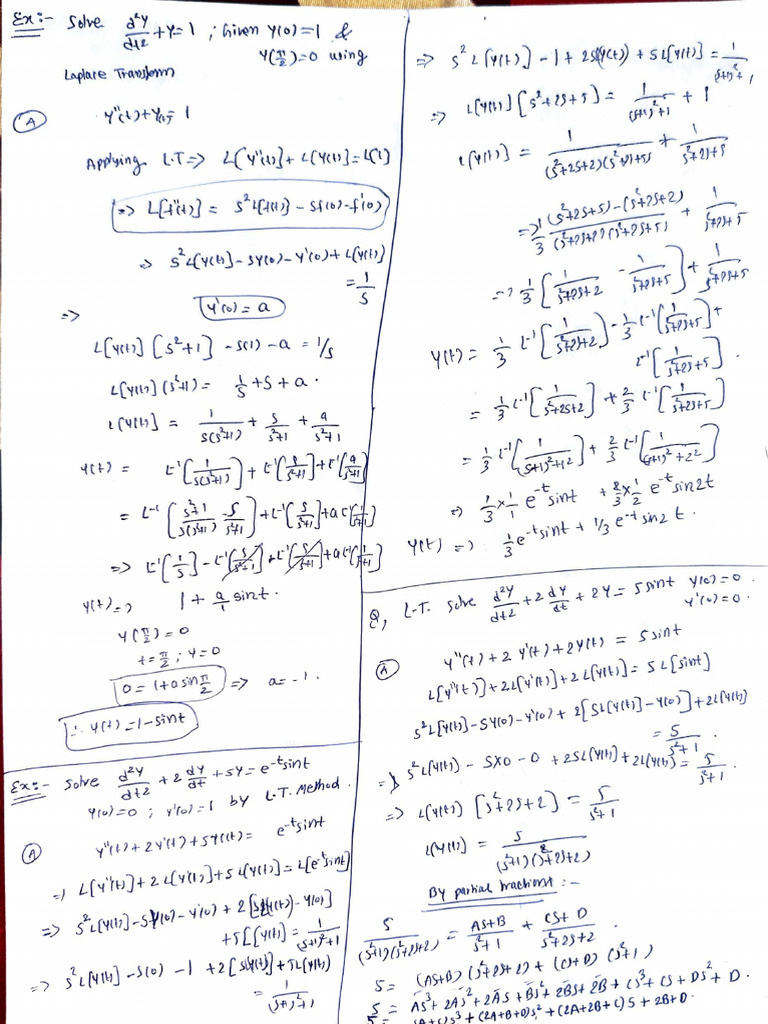 Ex:- Solve d²y/dt² + y = 1 ; Given y(0) = 1 &
y(π/2) = 0 using
Laplace Transform
(A) y''(t) + y(t) = 1
Applying L.T => L[y''(t)] + L[y(t)] = L[1]
=> L[f''(t)] = s² L[f(t)] - sf(0) - f'(0)
=> s² L[y(t)] - sy(0) - y'(0) + L[y(t)]
= 1/s
=> y'(0) = a
L[y(t)] [s²+1] - s(1) - a = 1/s
L[y(t)] (s²+1) = 1/s + s + a.
L[y(t)] = 1/s(s²+1) + s/s²+1 + a/s²+1
y(t) = L⁻¹[1/s(s²+1)] + L⁻¹[s/s²+1] + L⁻¹[a/s²+1]
= L⁻¹[s²+1/s(s²+1) - s/s²+1] + L⁻¹[s/s²+1] + a L⁻¹[1/s²+1]
=> L⁻¹[1/s] - L⁻¹[s/s²+1] + L⁻¹[s/s²+1] + a L⁻¹[1/s²+1]
y(t) => 1 + a/1 sint.
y(π/2) = 0
t = π/2 ; y = 0
0 = 1 + a sin π/2 => a = -1.
∴ y(t) = 1 - sint
Ex:- Solve d²y/dt² + 2 dy/dt + 5y = e⁻ᵗsint
y(0) = 0 ; y'(0) = 1 by L.T. Method.
(A) y''(t) + 2y'(t) + 5y(t) = e⁻ᵗsint
=> L[y''(t)] + 2L[y'(t)] + 5L[y(t)] = L[e⁻ᵗsint]
=> s² L[y(t)] - sy(0) - y'(0) + 2[sL[y(t)] - y(0)]
+ 5[L[y(t)] = 1/(s+1)²+1
=> s² L[y(t)] - s(0) - 1 + 2[sL[y(t)] + 5L[y(t)]
= 1/(s+1)²+1
=> s² L[y(t)] - 1 + 2sL[y(t)] + 5L[y(t)] = 1/(s+1)²+1
=> L[y(t)] [s²+2s+5] = 1/(s+1)²+1 + 1
L[y(t)] = 1/(s²+2s+2)(s²+2s+5) + 1/s²+2s+5
=> 1/3 (s²+2s+5) - (s²+2s+2)/(s²+2s+2)(s²+2s+5) + 1/s²+2s+5
=> 1/3 [1/s²+2s+2 - 1/s²+2s+5] + 1/s²+2s+5
y(t) = 1/3 L⁻¹[1/s²+2s+2] - 1/3 L⁻¹[1/s²+2s+5] +
L⁻¹[1/s²+2s+5].
= 1/3 L⁻¹[1/s²+2s+2] + 2/3 L⁻¹[1/s²+2s+5]
= 1/3 L⁻¹[1/(s+1)²+1²] + 2/3 L⁻¹[1/(s+1)²+2²]
=> 1/3 × 1/1 e⁻ᵗsint + 2/3 × 1/2 e⁻ᵗsin2t
y(t) => 1/3 e⁻ᵗsint + 1/3 e⁻ᵗsin2t.
Q, L.T. Solve d²y/dt² + 2 dy/dt + 2y = 5sint y(0) = 0
y'(0) = 0.
(A) y''(t) + 2y'(t) + 2y(t) = 5sint
L[y''(t)] + 2L[y'(t)] + 2L[y(t)] = 5L[sint]
s² L[y(t)] - sy(0) - y'(0) + 2[sL[y(t)] - y(0)] + 2L[y(t)]
= 5/s²+1.
=> s² L[y(t)] - s×0 - 0 + 2sL[y(t)] + 2L[y(t)] = 5/s²+1.
=> L[y(t)] [s²+2s+2] = 5/s²+1
L[y(t)] = 5/(s²+1)(s²+2s+2)
By partial fractions :-
5/(s²+1)(s²+2s+2) = As+B/s²+1 + Cs+D/s²+2s+2.
5 = (As+B)(s²+2s+2) + (Cs+D)(s²+1)
5 = As³ + 2As² + 2As + Bs² + 2Bs + 2B + Cs³ + Cs + Ds² + D.
5 = (A+C)s³ + (2A+B+D)s² + (2A+2B+C)s + 2B+D.